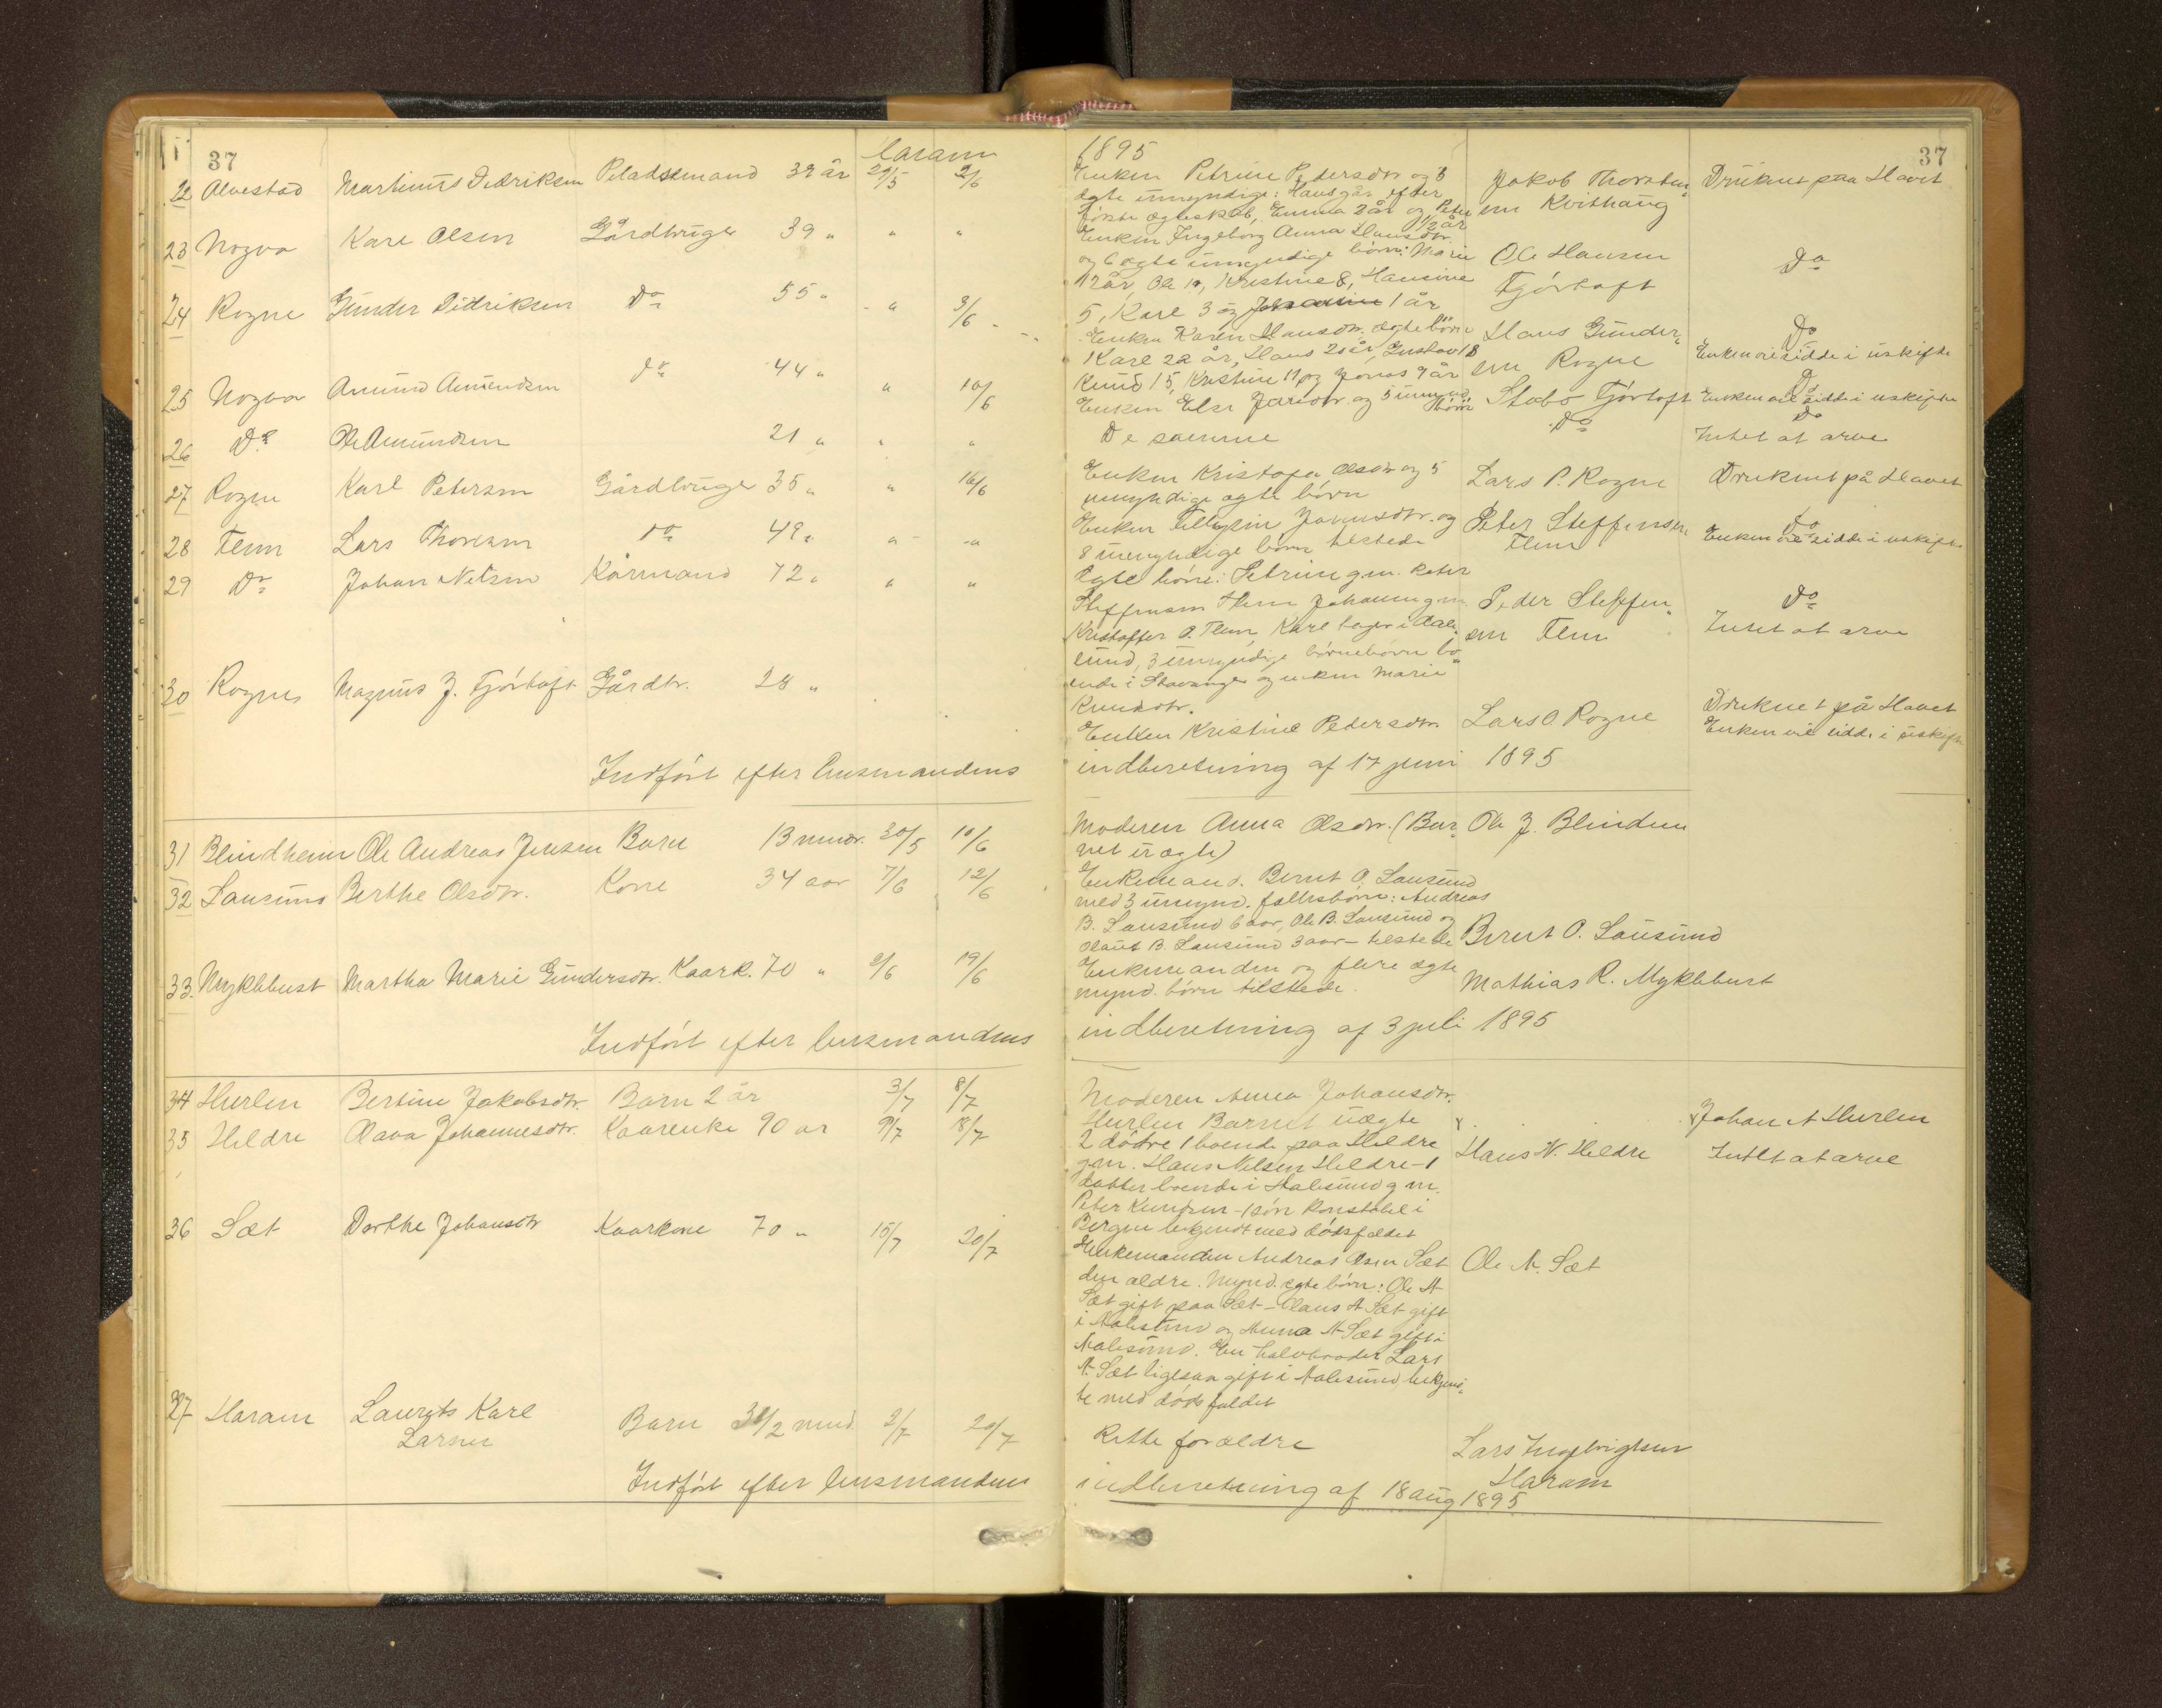 37
Haram
1895
37
22 Alvestad Martinus Didriksen Pladsemand 32 år 29/5 2/6
Enken Petrine Pedersdtr og 3
ægte umyndige: Hans 9 år efter
første ægteskab, Emma 2 år og Peter
1/2 år
Jakob Thorsten-
sen Kvithaug
Druknet paa Havet
23 Nogva Karl Olsen Gårdbruger 39 " " "
Enken Ingeborg Anna Hansdtr.
og 6 ægte umyndige børn: Marie
12 år, Ole 10, Kristine 8, Hansine
5, Karl 3 og 1 år
Ole Hansen
Fjørtoft
Do
24 Rogne Gunder Didriksen Do 55 " " 3/6
Enken Karen Hansdtr. ægte børn
Karl 22 år, Hans 20 år, Gustav 18
Knud 15, Kristine 11 og Jonas 9 år
Hans Gunder-
sen Rogne
Do
Enken vil sidde i uskifte
25 Nogva Amund Amundsen do 44 " " 10/6
Enken Else Jansdtr. og 5 umynd.
børn
Stabo Fjørtoft
Do
Enken vil sidde i uskifte
26 Do Ole Amundsen 21 " " "
De samme
Do
Do
Intet at arve
27 Rogne Karl Petersen Gårdbruger 35 " " 16/6
Enken Kristofa Olsdtr og 5
umyndige ægte børn
Lars P. Rogne
Druknet på Havet
28 Flem Lars Thoresen do 49 " " "
Enken Jonnsdtr. og
8 umyndige børn tilstede
Peter Steffensen
Flem
Do
Enken vil sidde i uskifte
29 Do Johan Nilsen Kårmand 72 " " "
Ægte børn: Petrine g.m. Peter
Steffensen Flem Johanne g.m.
Kristoffer O. Flem, Karl bager i Aale-
sund, 3 umyndige børnebørn bo-
ende i Stavanger og enken Marie
Knudsdtr.
Peder Steffen-
sen Flem
Do
Intet at arve
30 Rogne Magnus J. Fjørtoft Gårdbr. 28 "
Enken Kristine Pedersdtr.
Lars O Rogne
Druknet på Havet
Enken vil sidde i uskifte
Indført efter lensmandens indberetning af 17 juni 1895
31 Blindheim Ole Andreas Jensen Barn 13 mndr. 30/5 10/6
Moderen Anna Olsdtr. (Bar-
net er ægte)
Ole J. Blindem
32 Lausund Berthe Olsdtr. Kone 34 aar 7/6 12/6
Enkemand. Bernt O. Lausund
med 3 umynd. fællesbørn: Andreas
B. Lausund 6 aar, Ole B. Lausund og
Olaus B. Lausund 3 aar - tilstede
Bernt O. Lausund
33. Myklebust Martha Marie Gundersdtr. Kaark. 70 " 2/6 19/6
Enkemanden og flere ægte
mynd. børn tilstede.
Mathias R. Myklebust
Indført efter lensmandens indberetning af 3 juli 1895
34 Hurlen Bertine Jakobsdtr. Barn 2 år 3/7 8/7
Moderen Anna Johansdtr.
Hurlen Barnet uægte
Johan A Hurlen
35 Hildre Olava Johannesdtr. Kaarenke 90 ar 9/7 18/7
2 døtre 1 boende paa Hildre
g.m. Hans Nilsen Hildre - 1
datter boende i Aalesund g.m.
Peter Knudsen - 1 søn Konstabel i
Bergen bekjendt med dødsfaldet
Hans N. Hildre
Intet at arve
36 Sæt Dorthe Johansdtr Kaarkone 70 " 15/7 20/7
Enkemanden Andreas Olsen Sæt
den ældre. Mynd. ægte børn: Ole A
Sæt gift paa Sæt - Claus A Sæt gift
i Aalesund og Anna A Sæt gift i
Aalesund. En halvbroder Lars
A. Sæt ligesaa gift i Aalesund bekjend-
te med dødsfaldet
Ole A. Sæt
37 Haram Laurits Karl
Larsen
Barn 3 1/2 mnd. 2/7 20/7
Rette forældre
Lars Ingebrigtsen
Haram
Indført efter lensmandens indberetning af 18 aug 1895